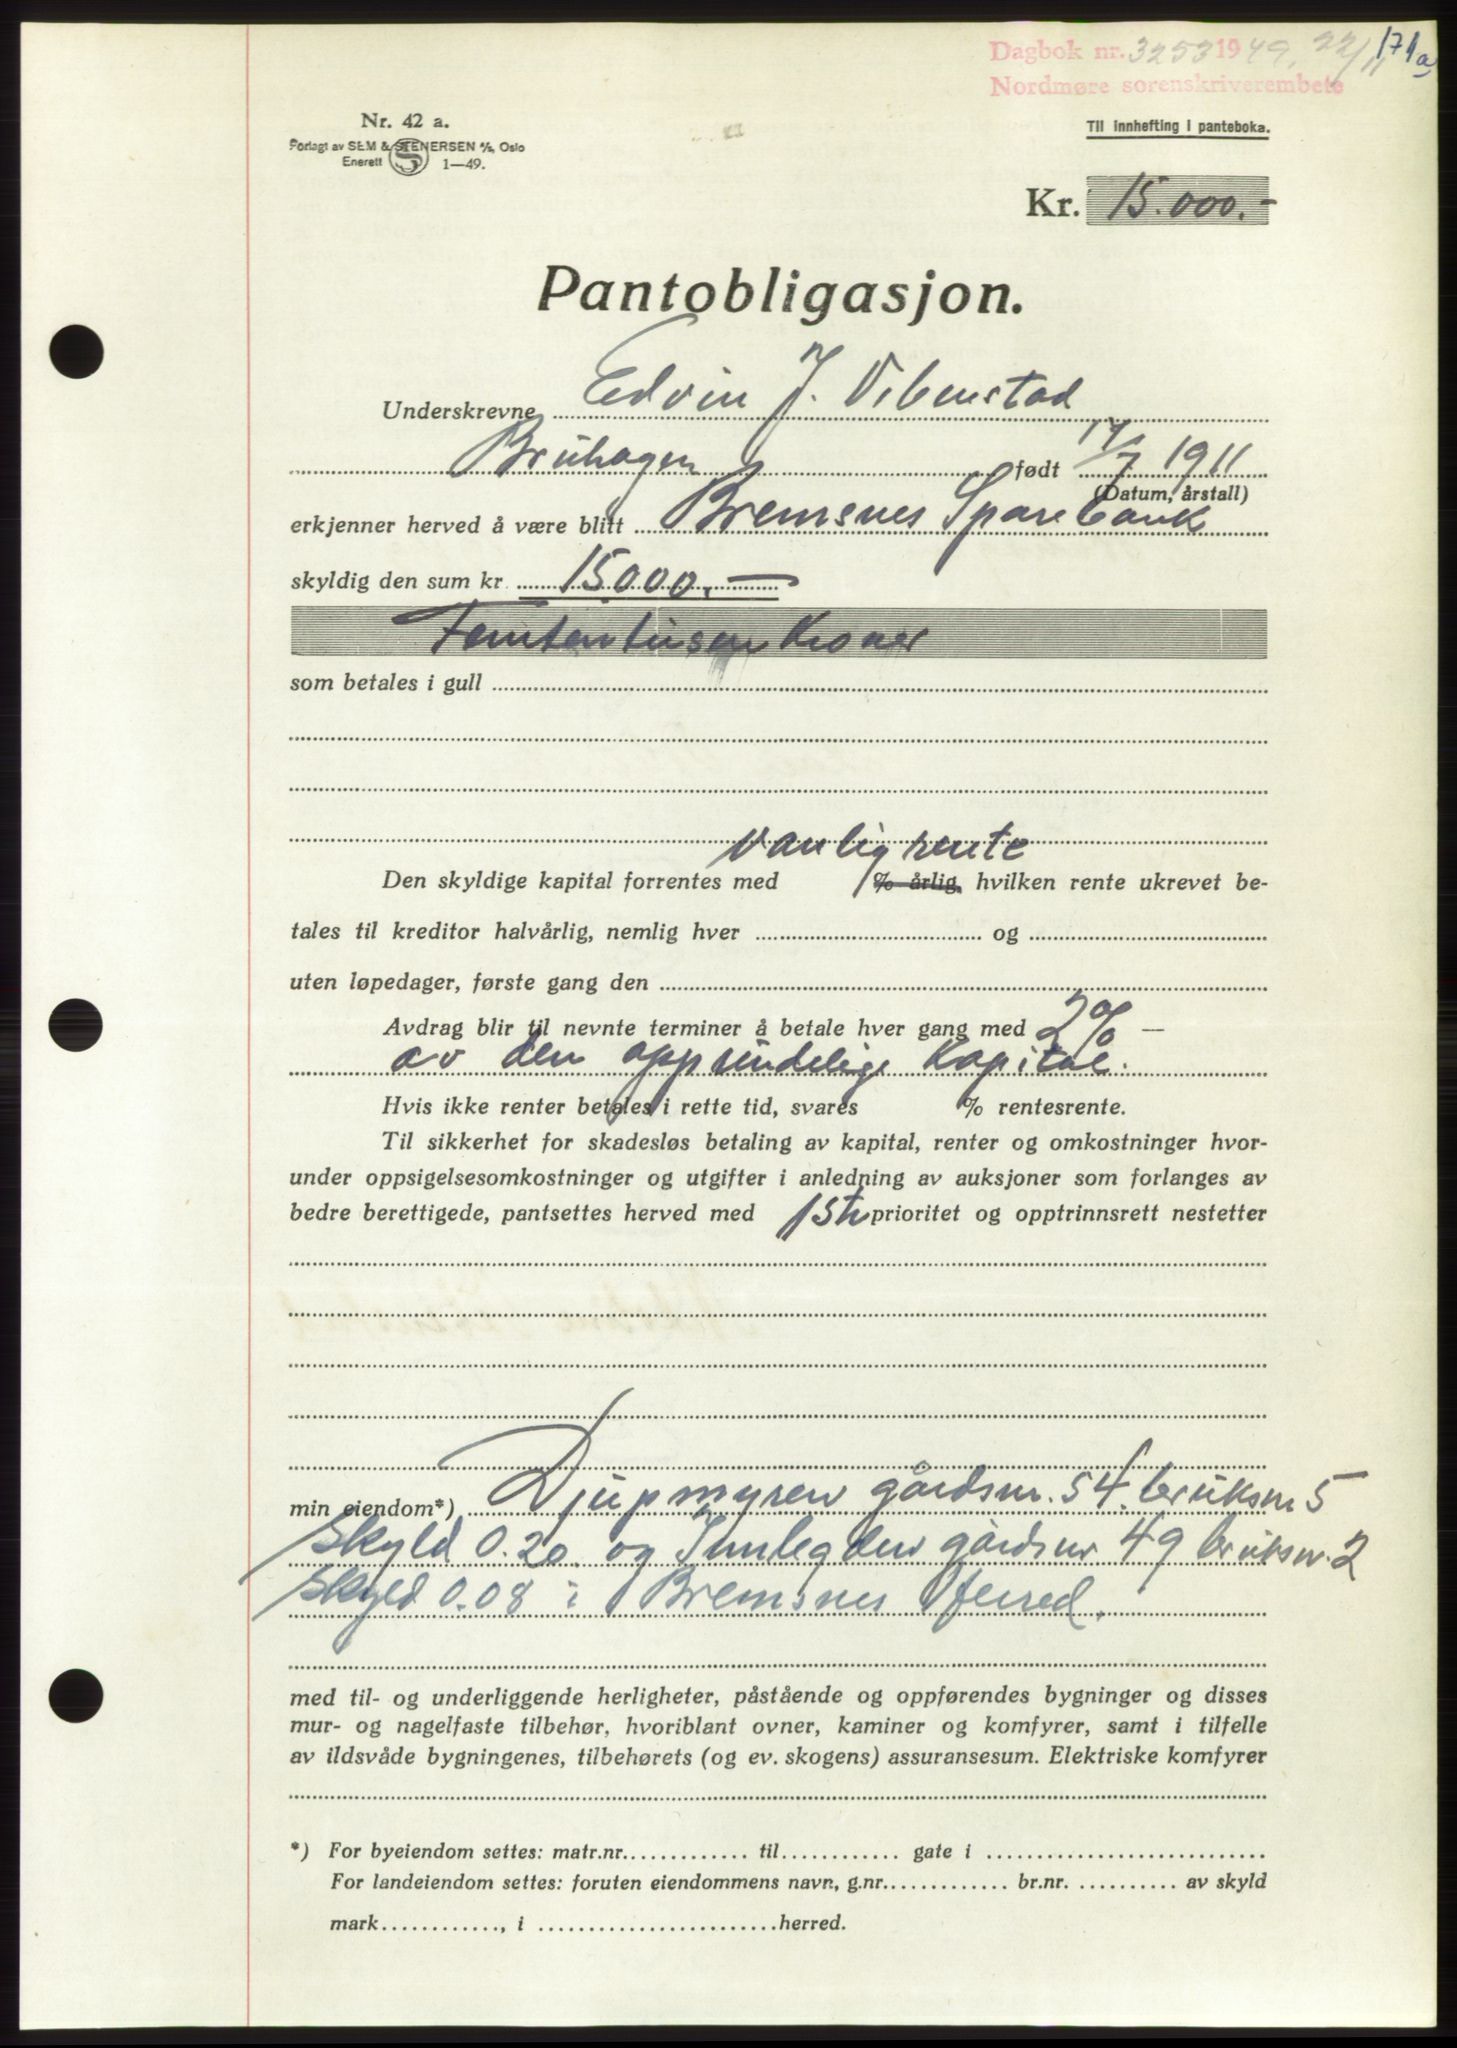 Dagbok nr. 3253 1949. 22/11 171a
Nordmøre sorenskriverembete
Nr. 42 a.
Forlagt av SEM & STENERSEN A/S, Oslo
Enerett S 1—49.
Til innhefting i panteboka.
Kr. 15.000.-
Pantobligasjon.
Underskrevne Edvin J. Vibenstad
Bruhagen født 17/7 1911
(Datum, årstall)
erkjenner herved å være blitt Bremsnes Sparebank
skyldig den sum kr 15000.—
Femtentusen Kroner
som betales i gull
vanlig rente
Den skyldige kapital forrentes med % årlig, hvilken rente ukrevet be-
tales til kreditor halvårlig, nemlig hver og
uten løpedager, første gang den
Avdrag blir til nevnte terminer å betale hver gang med 2% —
av den opprindelige Kapital.
Hvis ikke renter betales i rette tid, svares % rentesrente.
Til sikkerhet for skadesløs betaling av kapital, renter og omkostninger hvor-
under oppsigelsesomkostninger og utgifter i anledning av auksjoner som forlanges av
bedre berettigede, pantsettes herved med 1ste prioritet og opptrinnsrett nestetter
min eiendom*) Djupmyren gårdsnr. 54. bruksnr 5
skyld 0.20. og Innlegden gårdsnr 49 bruksnr. 2
skyld 0.08 i Bremsnes Herred.
med til- og underliggende herligheter, påstående og oppførendes bygninger og disses
mur- og nagelfaste tilbehør, hvoriblant ovner, kaminer og komfyrer, samt i tilfelle
av ildsvåde bygningenes, tilbehørets (og ev. skogens) assuransesum. Elektriske komfyrer
*) For byeiendom settes: matr.nr. til gate i
For landeiendom settes: foruten eiendommens navn, g.nr. br.nr. av skyld
mark , i herred.